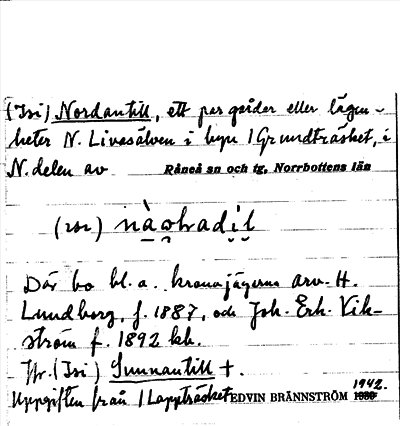 (Isi) Nordantill, ett par gårdar eller lägen-
heter N. Livasälven i byn 1 Grundträsket, i
N. delen av Råneå sn och tg, Norrbottens län
Där bo bl. a. kronojägarna arv. H.
Lundberg, f. 1887, och Joh. Erh. Vik-
ström f. 1892 bh.
Jfr. (Isi) Sunnantill +.
Uppgiften från 1 Lappträsket EDVIN BRÄNNSTRÖM 1942.